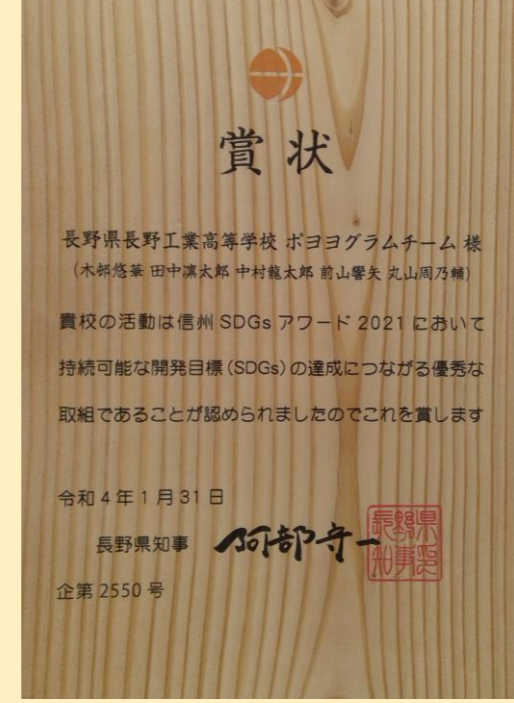 賞状
長野県長野工業高等学校 ポヨヨグラムチーム 様
(木邨悠華 田中凛太郎 中村龍太郎 前山響矢 丸山周乃輔)
貴校の活動は信州 SDGs アワード 2021 において
持続可能な開発目標(SDGs)の達成につながる優秀な
取組であることが認められましたのでこれを賞します
令和4年1月31日
長野県知事 阿部守一
長野県知事印
企第2550号